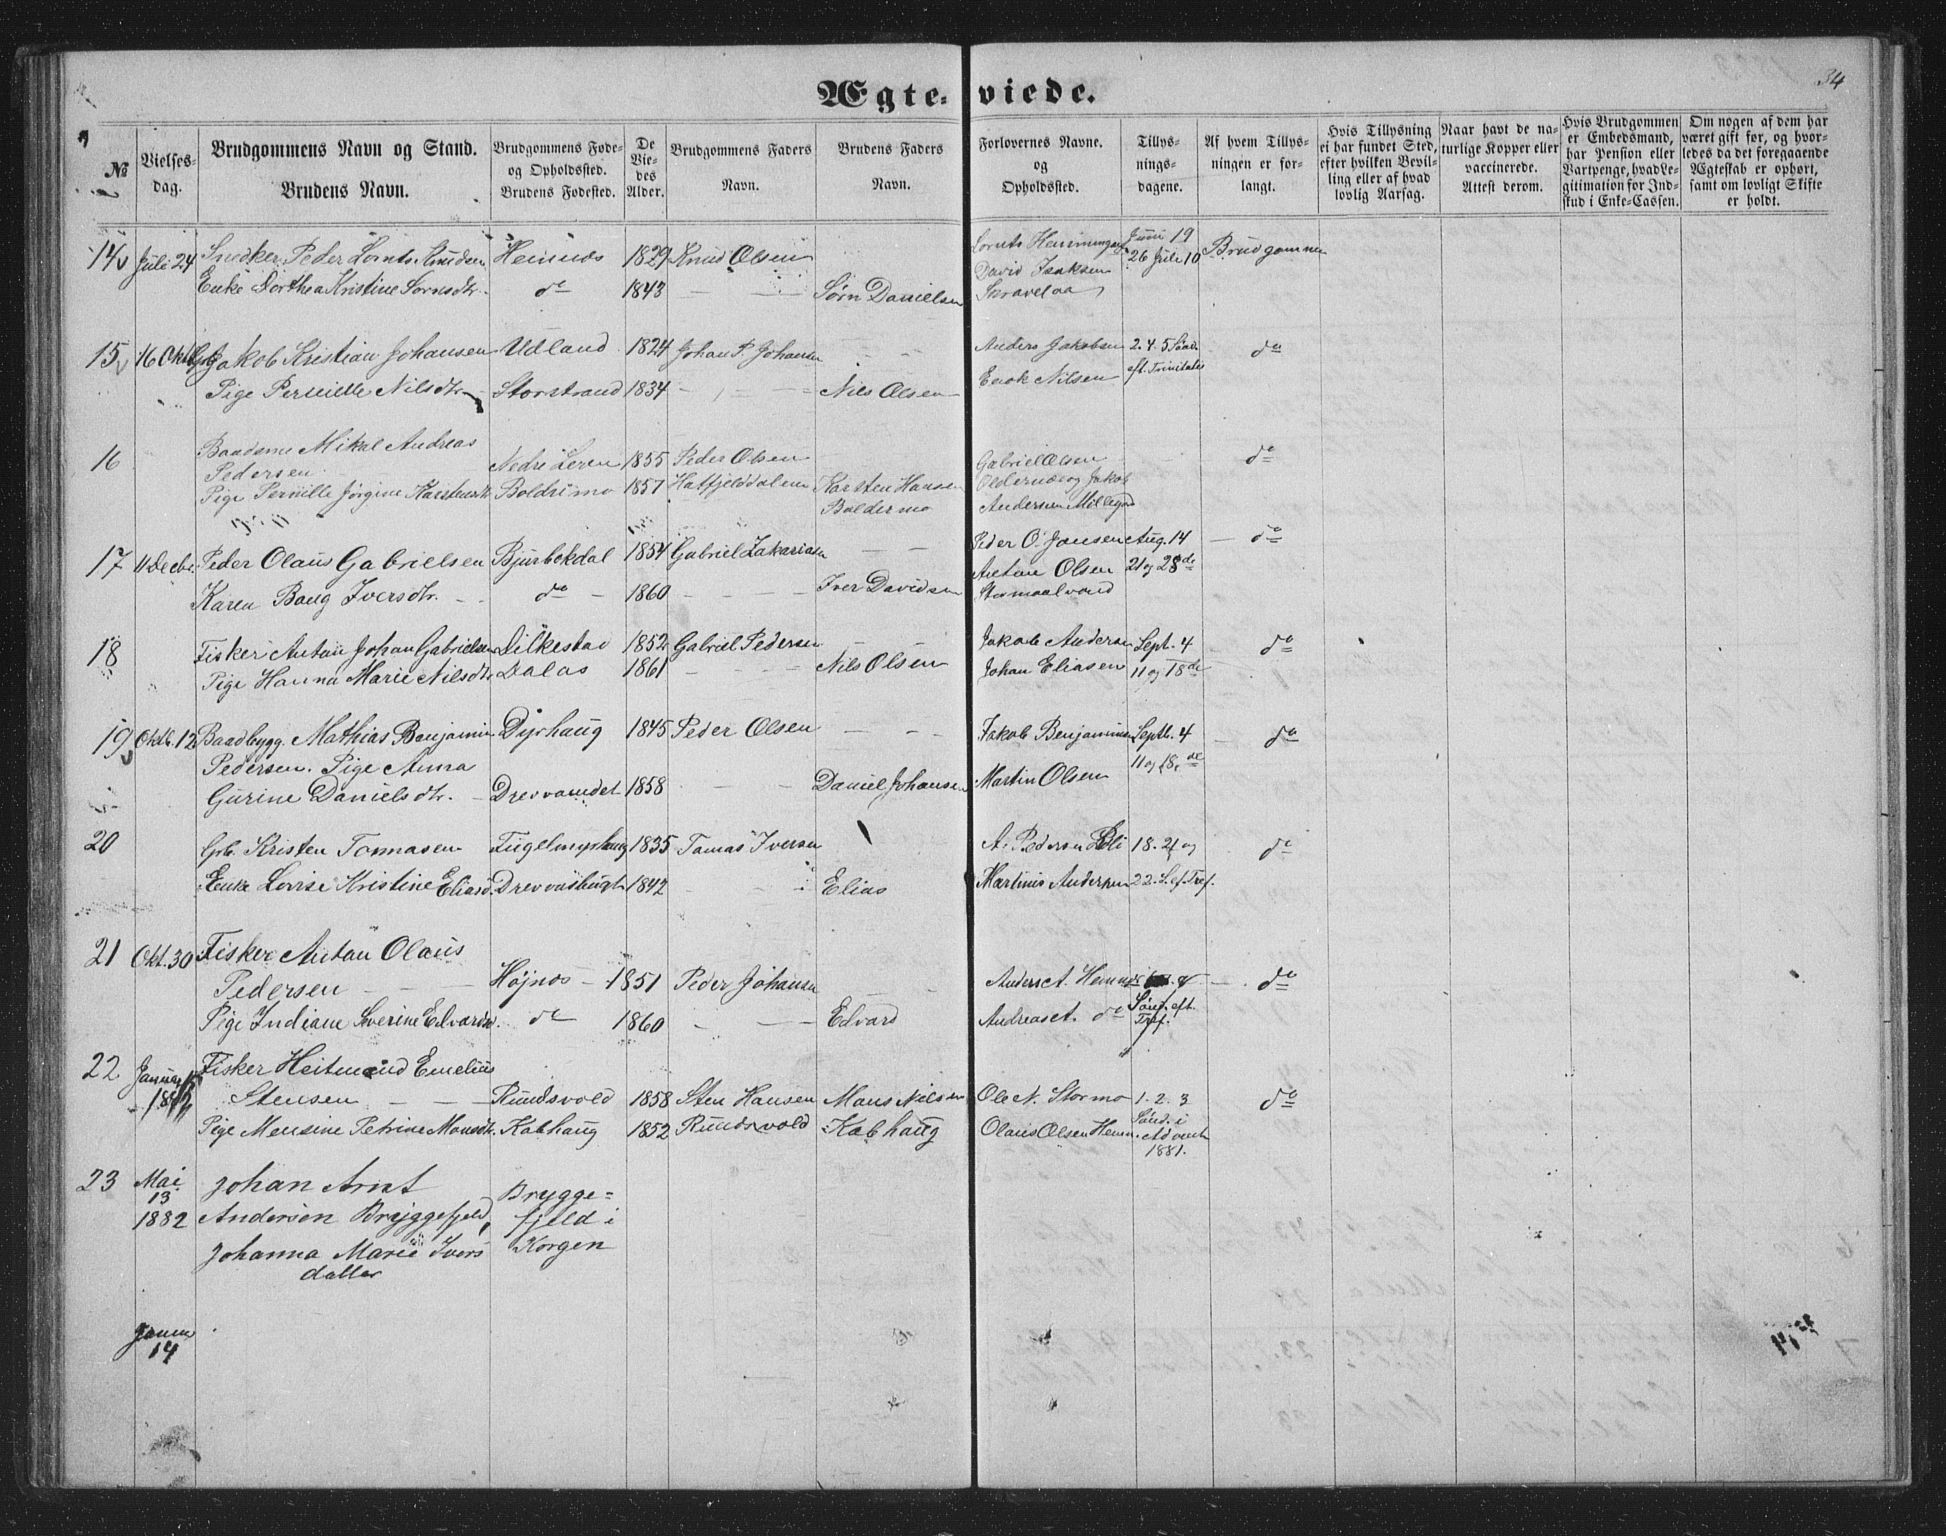 34
Ægteviede.
№
Vielsesdag.
Brudgommens Navn og Stand.
Brudens Navn.
Brudgommens Føde- og Opholdssted.
Brudens Fødested.
De Viedes Alder.
Brudgommens Faders Navn.
Brudens Faders Navn.
Forlovernes Navne. og Opholdsted.
Tillysningsdagene.
Af hvem Tillysningen er forlangt.
Hvis Tillysning ei har fundet Sted, efter hvilken Bevilling eller af hvad lovlig Aarsag.
Naar havt de naturlige Kopper eller vaccinerede. Attest derom.
Hvis Brudgommen er Embedsmand, har Pension eller Vartpenge, hvad Legitimation for Indskud i Enke-Cassen.
Om nogen af dem har været gift før, og hvorledes da det foregaaende Ægteskab er ophørt, samt om lovligt Skifte er holdt.
14 Juli 24 Snedker Peder Lornts Knudsen Hemnes 1829 Knud Olsen Lornts Henningsen Juni 19 Brudgommen
Enke Dorthea Kristine Sørnsdtr. do 1843 Sørn Danielsen David Isaksen 26 Juli 10
15 16 Oktb Jakob Kristian Johansen Udland 1824 Johan P. Johansen Anders Jakobsen 2. 4. 5 Sønd. do
Pige Pernille Nilsdtr. Storstrand 1834 Nils Olsen Enok Nilsen eft. Trinitatis
16 Baadsm. Mikal Andreas
Pedersen Nedre Leren 1855 Peder Olsen Gabriel Olsen do
Pige Pernille Jørgine Karstensdtr Boldrimo 1857 Hatfjelddalen Karsten Hansen Oldernæs og Jakob
Boldermo Andersen Møllegrd
17 11 Decbr. Peder Olaus Gabrielsen Bjurbekdal 1854 Gabriel Zakariasen Peder O. Jansen Aug. 14 do
Karen Baug Iversdtr. do 1860 Iver Davidsen Antan Olsen 21 og 28de
Stormaalvand
18 Fisker Antan Johan Gabrielsen Lilkestad 1852 Gabriel Pedersen Jakob Andersen Sept. 4 do
Pige Hanna Marie Nilsdtr Dalas 1861 Nils Olsen Johan Eliasen 11 og 18de
19 Oktb. 12 Baadbygg. Mathias Benjamin Dyrhaug 1845 Peder Olsen Jakob Benjaminsen Septb. 4 do
Pedersen. Pige Anna 11 og 18. de
Gurine Danielsdtr. Drevvandet 1858 Daniel Johansen Martin Olsen
20 Grb. Kristen Tomasen Fugelmyrhaug 1835 Tomas Iversen A. Pedersen Lli 18. 21 og do
Enke Lovise Kristine Eliasd. Drevvashugt 1842 Elias Martinis Andersen 22. S. ef. Tref.
21 Okt. 30 Fisker Antan Olaus
Pedersen Højnes 1851 Peder Johansen Anders A. Hemnes do
Pige Indiane Severine Edvardsd. do 1860 Edvard Andreas A. do Sønd. eft. Tref.
22 Januar 1882 Fisker Heitmand Emelius
Stensen Rundsvold 1858 Sten Hansen Mons Nielsen Ole N. Stormo 1. 2. 3 do
Pige Mensine Petrine Monsdtr. Kobhaug 1852 Rundsvold Kobhaug Olaus Olsen Hemn. Sønd. i Advent 1881.
23 Mai 13 1882 Johan Arnt Brygge=
Andersen Bryggefjeld, fjeld i
Johanna Marie Ivers Korgen
datter
Januar
14